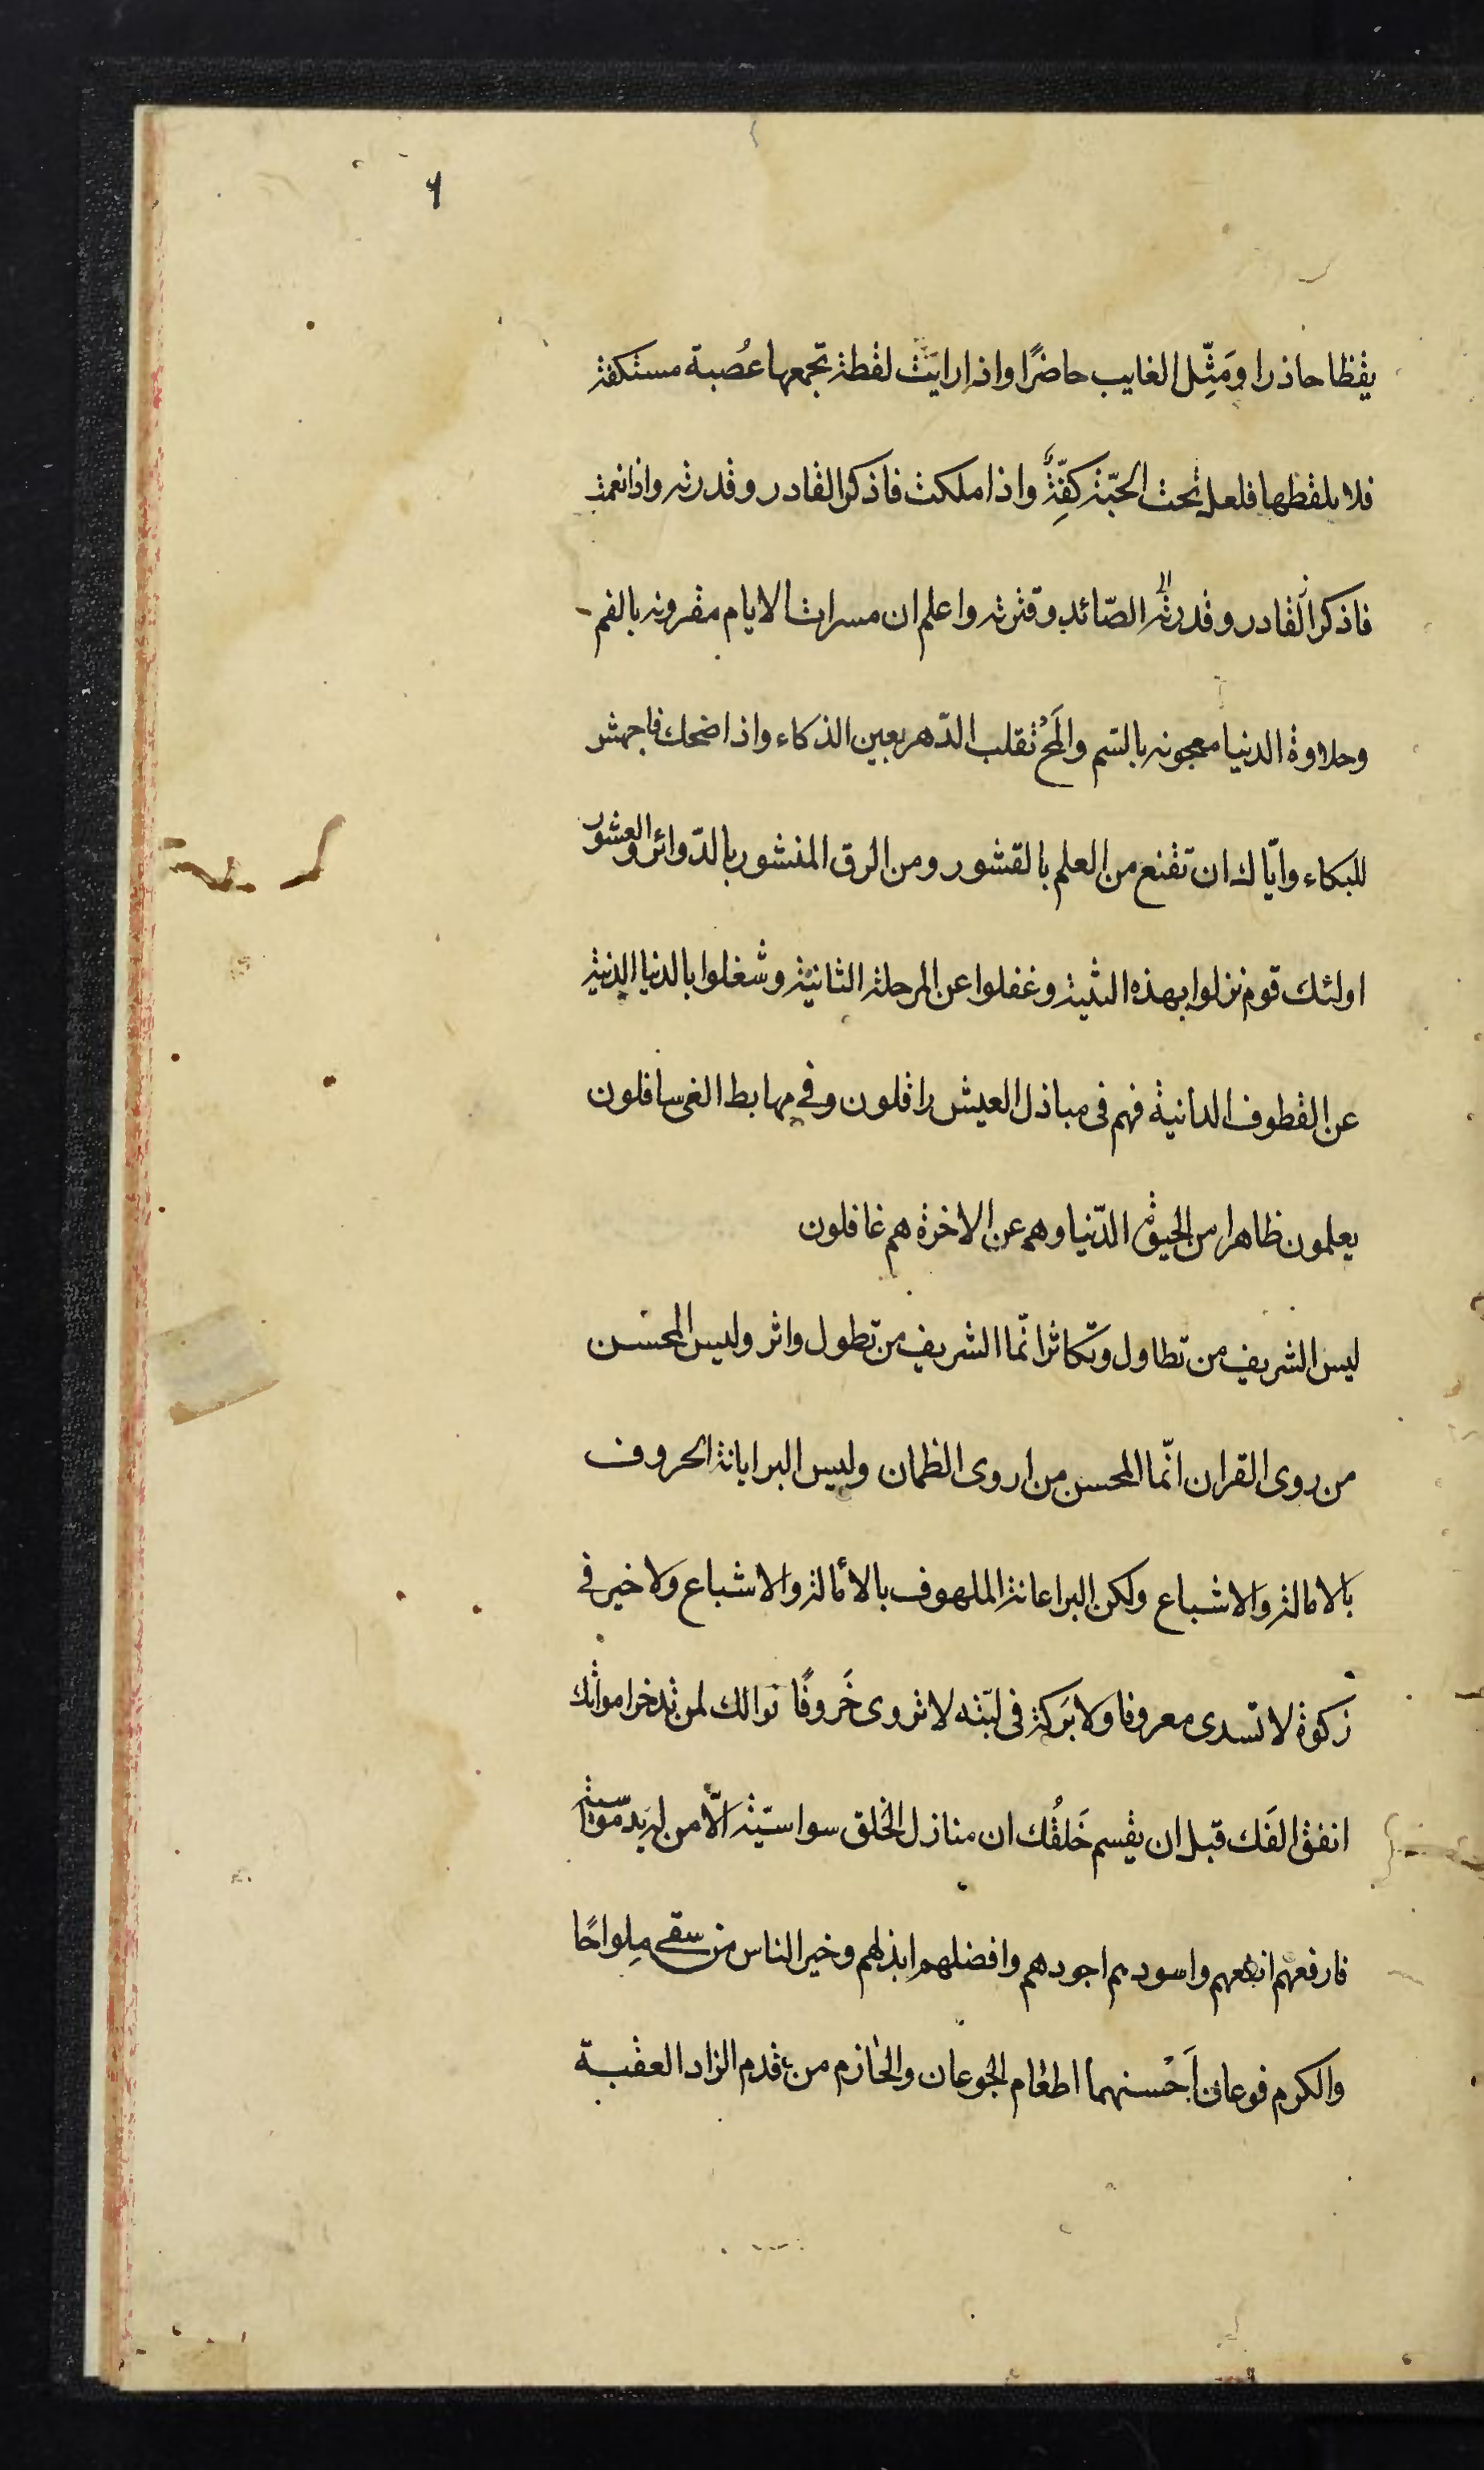 ٦
يقظا حاذرا ومَثِّل الغايب حاضرًا واذا رايَت لقطة تجمعها عُصبة مستكفة
فلا تلقطها فلعل تحت الحبّة كفِّةً واذا ملكت فاذكر القادر وقدرته واذا نعمت
فاذكر القادر وقدرته الصّائد وقترته واعلم ان مسرات الايام مقرونه بالغم
وحلاوة الدنيا معجونه بالسّم والمَحْ تقلب الدّهر بعين الذكاء واذا ضحك فاجهش
للبكاء وايّاك ان تقنع من العلم بالقشور ومن الرق المنشور بالدّوائر والعشور
اولئك قوم نزلوا بهذه الثنية وغفلوا عن المرحلة الثانية وشغلوا بالدنيا الدنية
عن القطوف الدانية فهم في مباذل العيش رافلون وفي مهابط الغي سافلون
يعلمون ظاهرا من الحيوة الدّنيا وهم عن الاخرة هم غافلون
ليس الشريف من تطاول وتكاثر انّما الشريف من تطول واثر وليس المحسن
من روى القران انّما المحسن من اروى الظمان وليس البر ابانة الحروف
بالامالة والاشباع ولكن البر اعانة الملهوف بالأنالة والاشباع ولا خير في
زكوة لا تسدى معروفا ولا بَركة في لبّنه لا تروى خَروفًا نوالك لمن تدخر اموالك
انفق الفَك قبل ان يقسم خَلفُك ان منازل الخلق سواسيّة الّا من له يد مواسية
فارفعهم انفعهم واسودهم اجودهم وافضلهم ابذلهم وخير الناس من سقى مِلواحًا
والكرم نوعان اَحْسنهما اطعام الجوعان والحازم من قدم الزاد العقبة